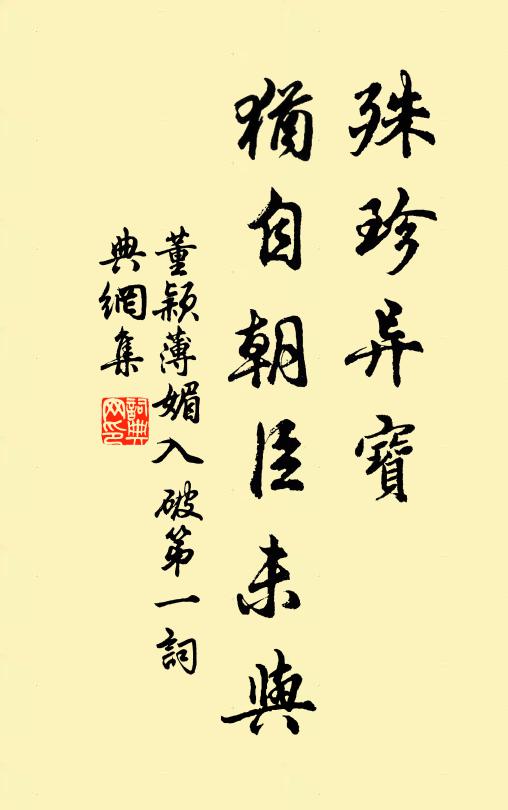 殊珍异寶
猶自朝臣未與
董穎薄媚入破第一詞
典網集
詞典網印